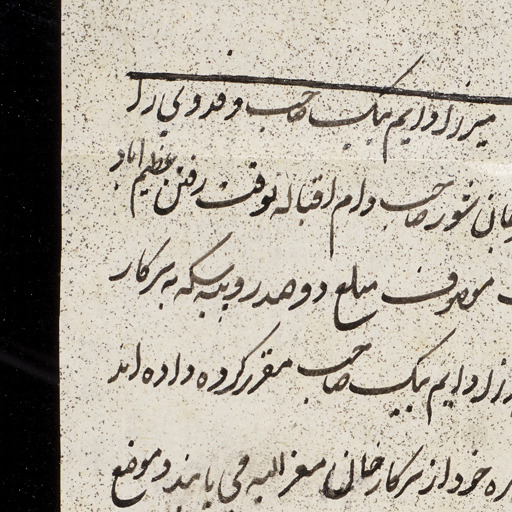 میرزا دایم بیک صاحب و فدوی را
صاحب دام اقباله بوقت رفتن عظیم اباد
موصوف مبلغ دو صد روپیه سکه به سرکار
دایم بیک صاحب مقرر کرده داده اند
خود از سرکار خان معز الیه می یابند و موضع